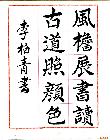 風檐展書讀
古道照顏色
李柏青書